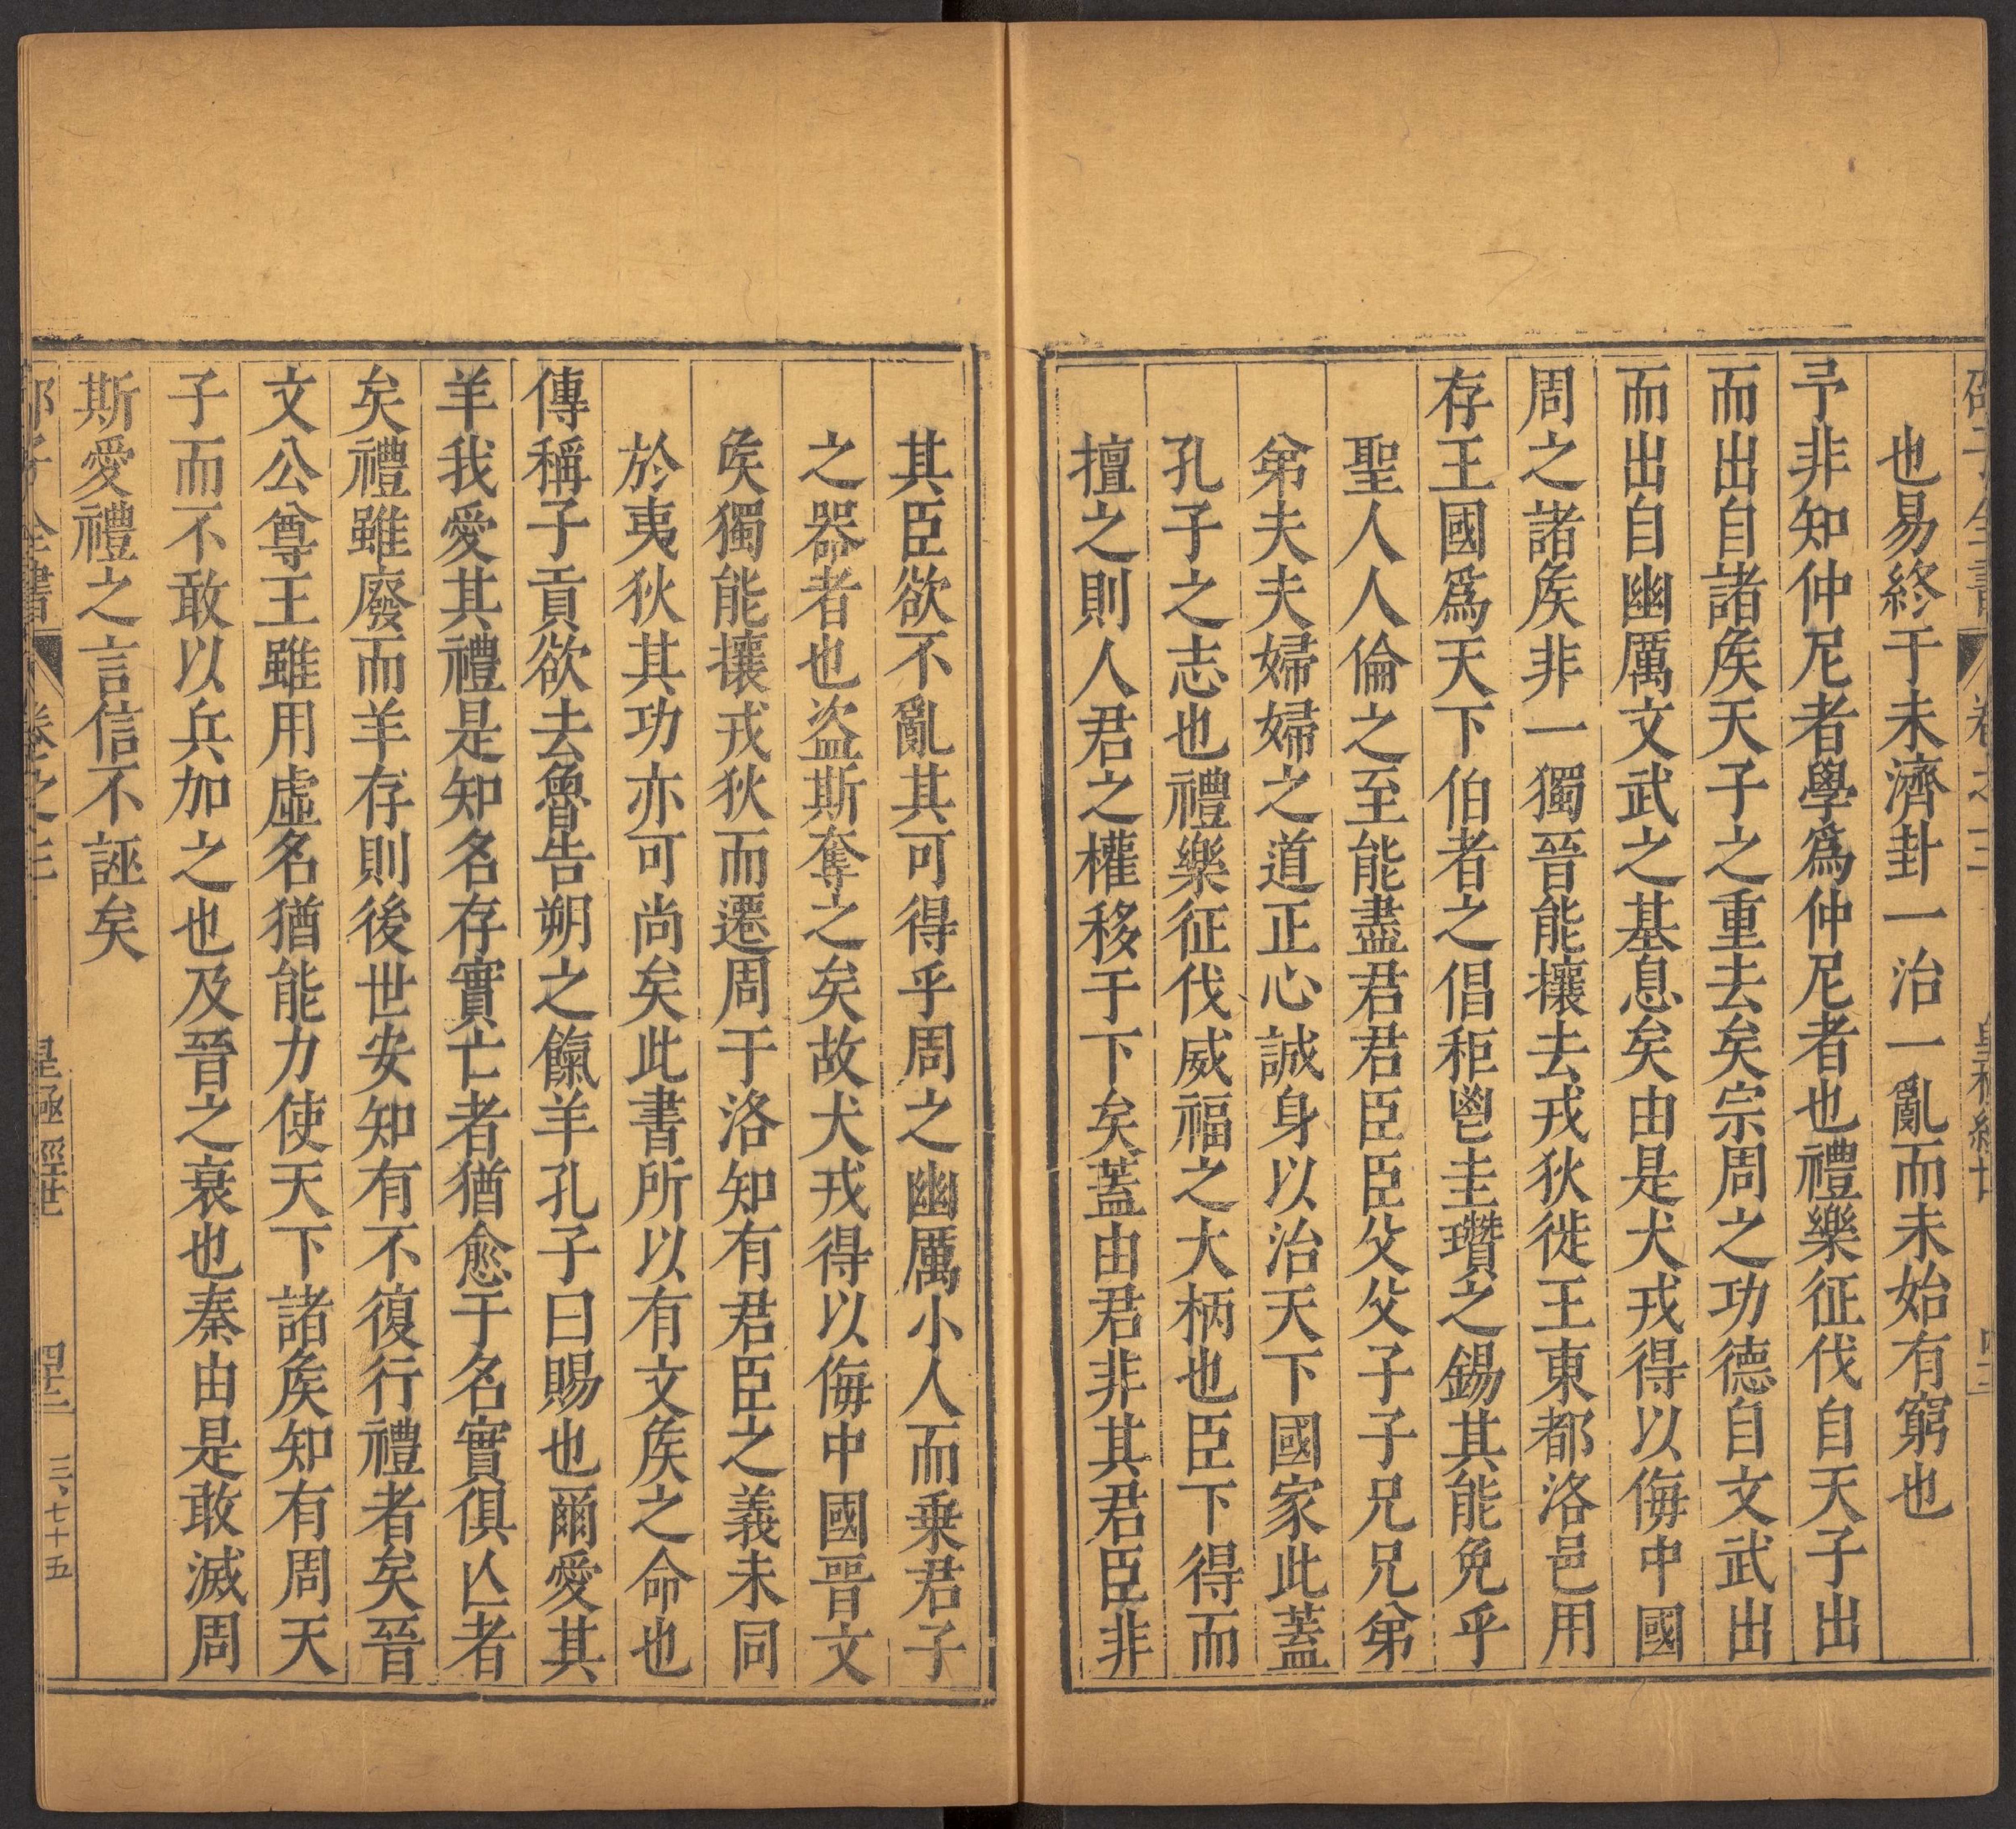 也易終于未濟卦一治一亂而未始有窮也
予非知仲尼者學爲仲尼者也禮樂征伐自天子出
而出自諸矦天子之重去矣宗周之功德自文武出
而出自幽厲文武之基息矣由是犬戎得以侮中國
周之諸矦非一獨晉能攘去戎狄徙王東都洛邑用
存王國爲天下伯者之倡秬鬯圭瓚之錫其能免乎
聖人人倫之至能盡君君臣臣父父子子兄兄弟
弟夫夫婦婦之道正心誠身以治天下國家此蓋
孔子之志也禮樂征伐威福之大柄也臣下得而
擅之則人君之權移于下矣蓋由君非其君臣非
其臣欲不亂其可得乎周之幽厲小人而乗君子
之器者也盗斯奪之矣故犬戎得以侮中國晉文
矦獨能攘戎狄而遷周于洛知有君臣之義未同
於夷狄其功亦可尚矣此書所以有文矦之命也
傳稱子貢欲去魯告朔之餼羊孔子曰賜也爾愛其
羊我愛其禮是知名存實亡者猶愈于名實俱亾者
矣禮雖廢而羊存則後世安知有不復行禮者矣晉
文公尊王雖用虛名猶能力使天下諸矦知有周天
子而不敢以兵加之也及晉之衰也秦由是敢滅周
斯愛禮之言信不誣矣
全書 卷之三 皇極經世 四十三 三、七十五